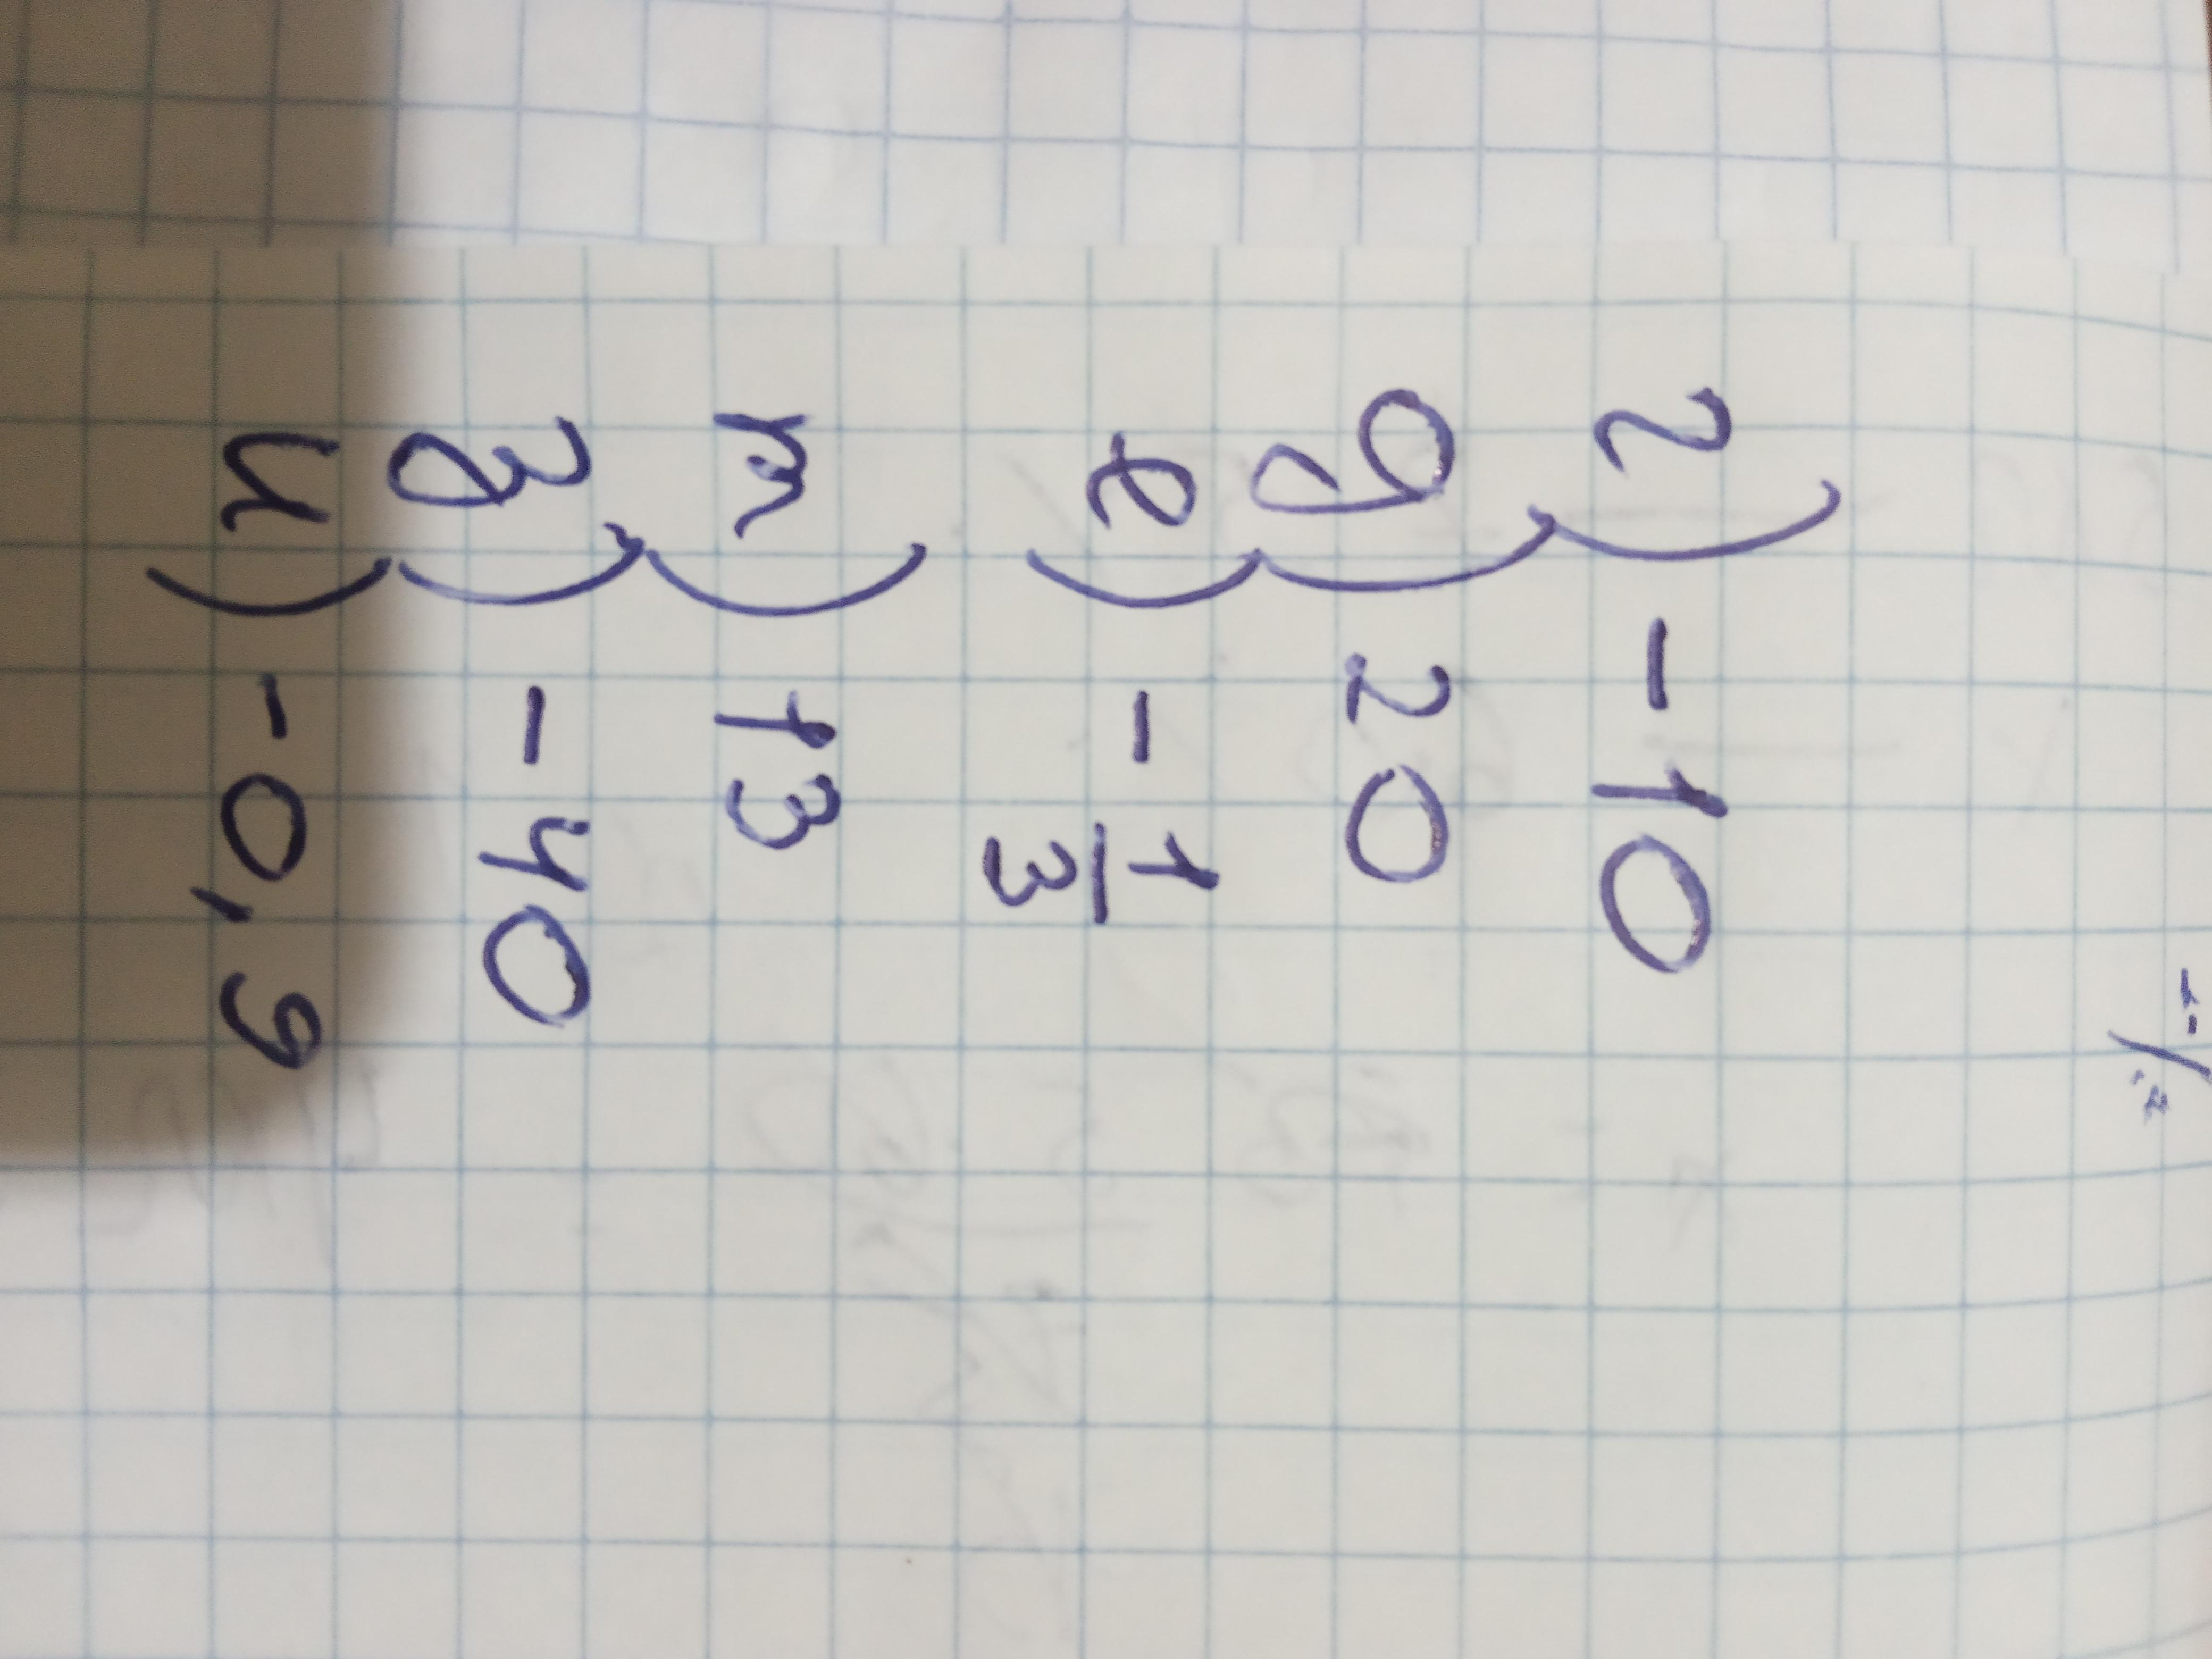 г) -10
д) 20
е) -1/3
ж) 13
з) -40
и) -0,9